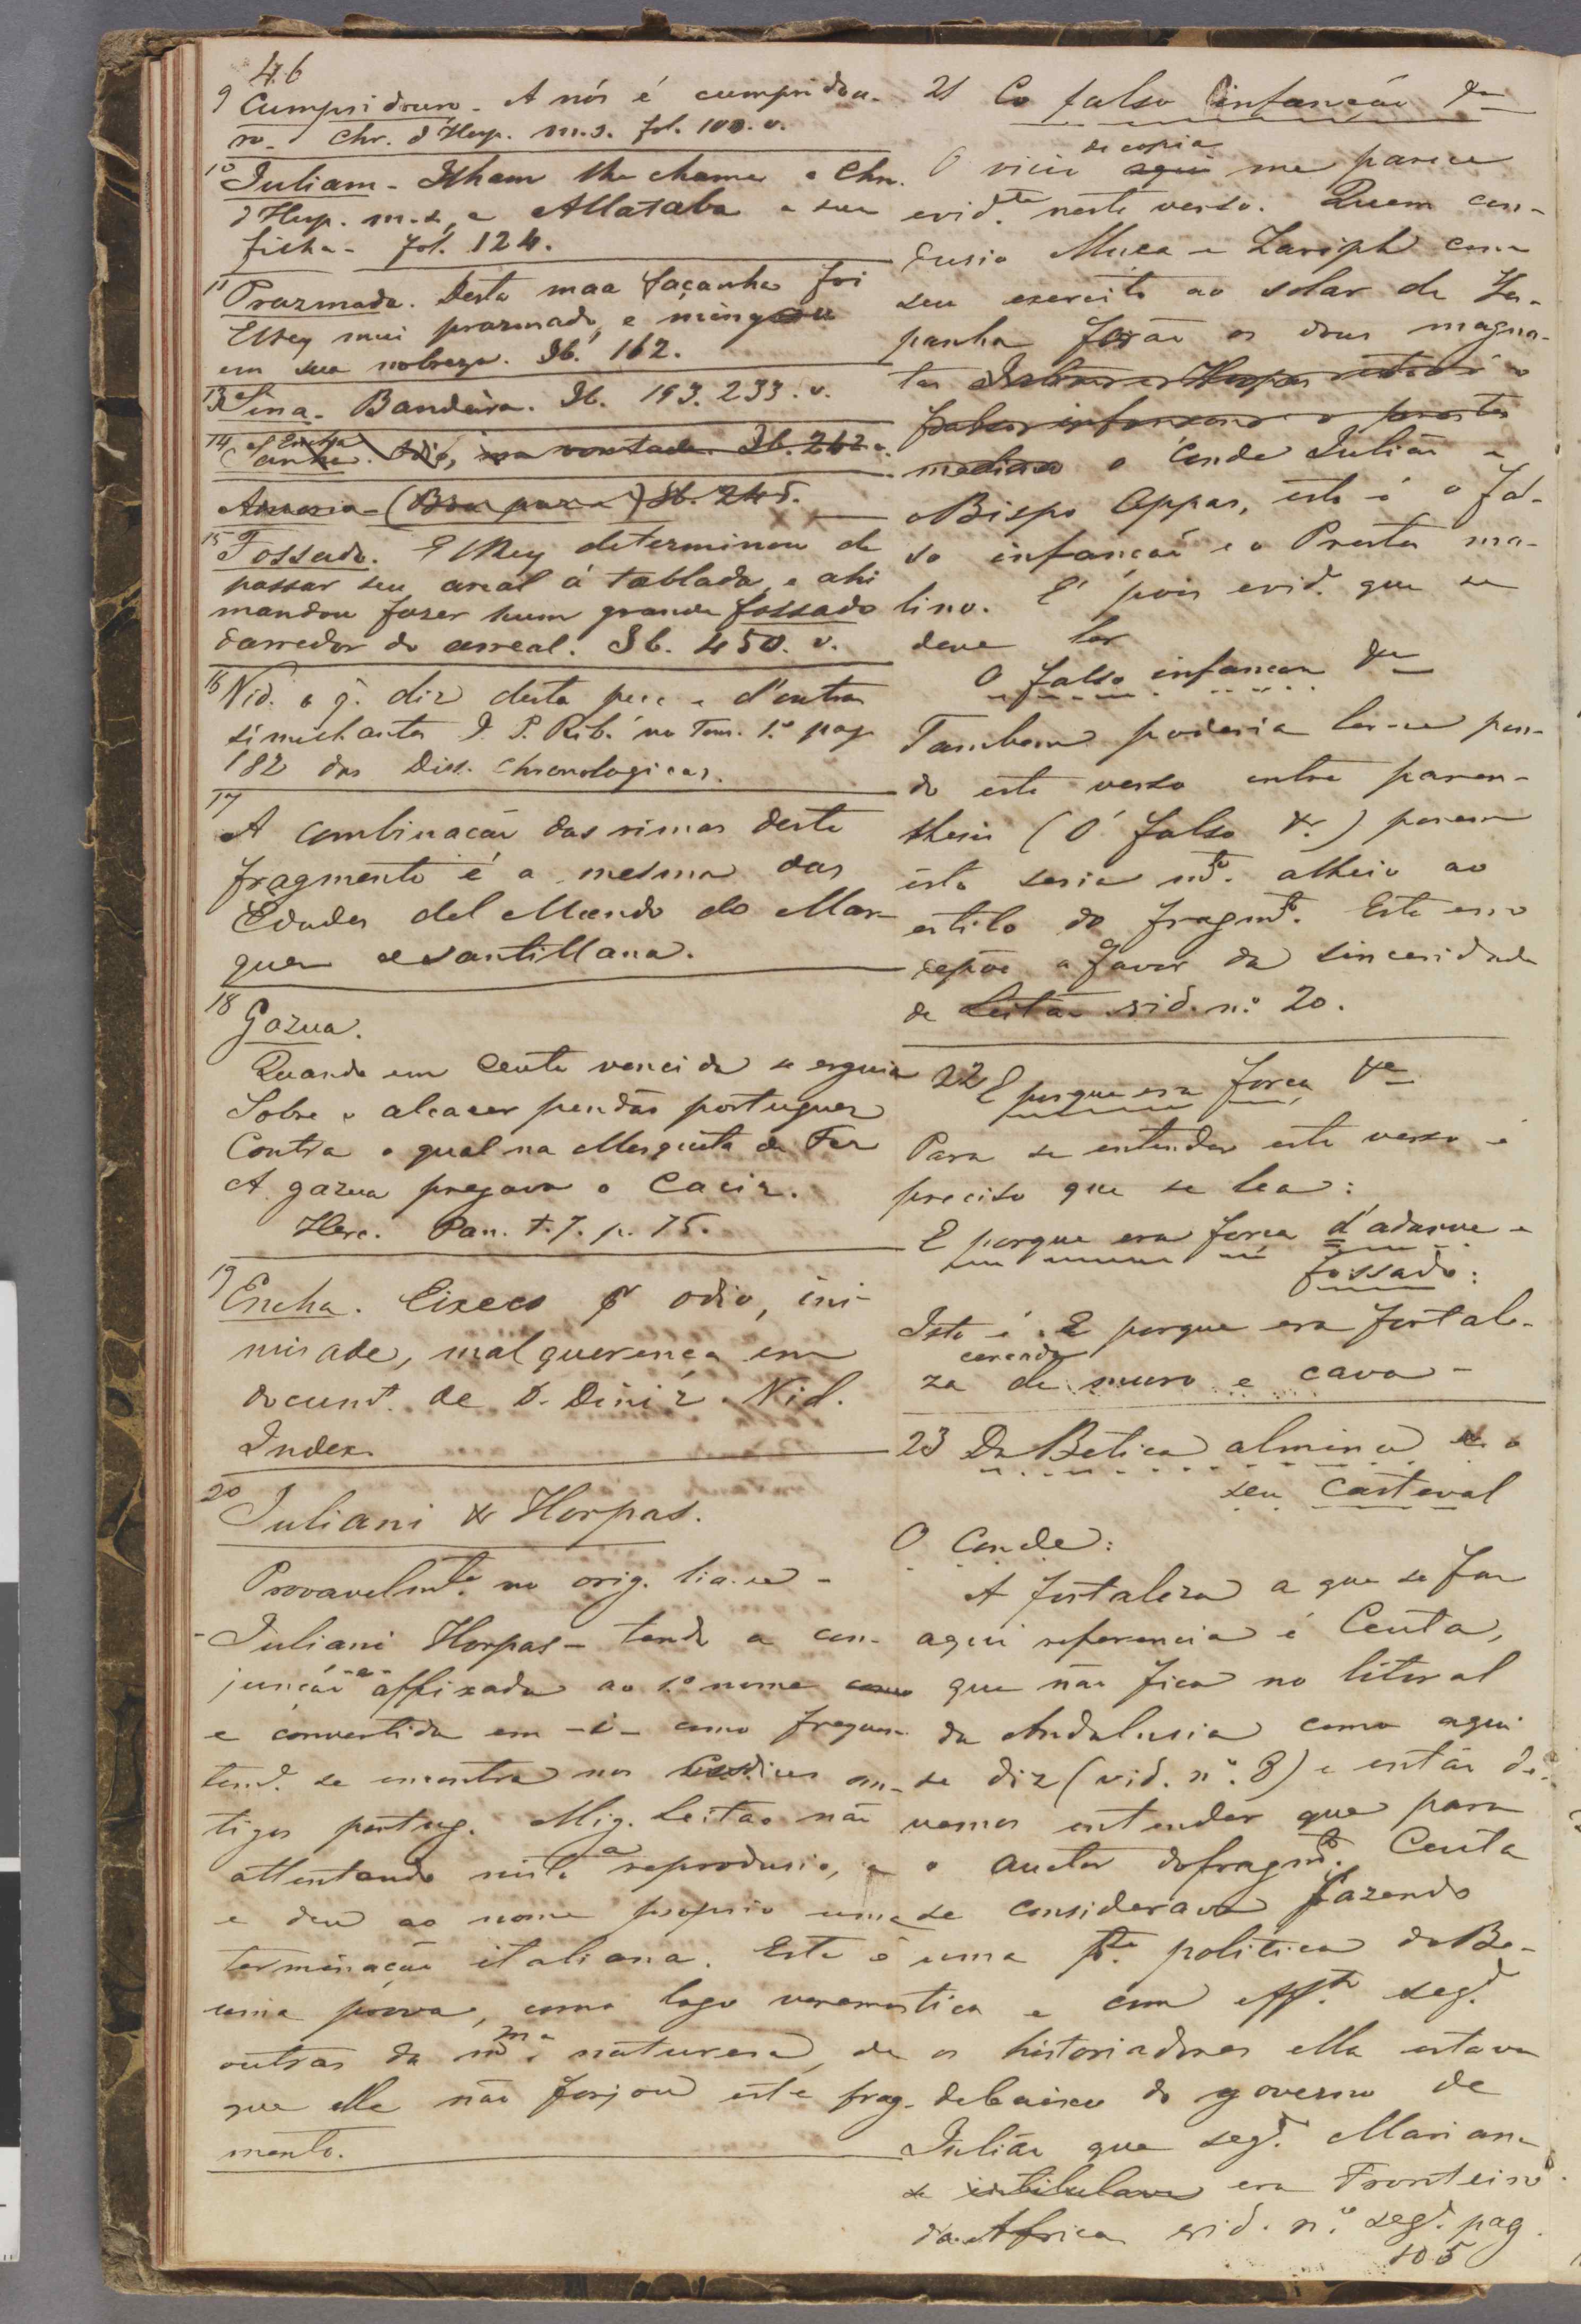 46
9 Cumpridouro - A nós é cumpridou-
ro - Chr. d'Hesp. m.s. fol. 100. v.
10 Juliam - Ilham lhe chama a Chr.
d'Hesp. m.s. e Allataba a sua
filha - fol. 124.
11 Prazmada. Desta maa façanha foi
ElRey mui prazmado, e mingou
em sua nobreza. Ib. 162.
13 Sina - Bandeira. Ib. 193. 233. v.
14 Encha odio, má vontade. Ib. 262 v.
Ib. 245.
15 Fossado. ElRey determinou de
passar seu areal á tablada, e ahi
mandou fazer hum grande fossado
darredor do arreal. Ib. 450. v.
16 Vid. o q. diz desta peça e d'outras
similhantes J. P. Rib. no Tom. 1.º pag
182 das Diss. Chronologicas.
17
A combinação das rimas deste
fragmento é a mesma das
Edades del Mundo do Mar-
quez de Santillana.
18 Gazua.
Quando em Ceuta vencida se erguia
Sobre o alcacer pendão portuguez
Contra o qual na Mesquita de Fez
A gazua pregava o Caciz.
Herc. Pan. t. 7. p. 75.
19 Encha. Eixeco p.r odio, ini-
misade, malquerença em
docum.t de D. Diniz. Vid.
Index.
20 Juliani & Horpas.
Provavelm.te no orig. lia-se -
- Juliani Horpas - tendo a con-
juncão -e- affixada ao 1.º nome como
e convertida em -i- como frequen-
tem.e se encontra nos Codices an-
tigos portug. Mig. Leitao não
attentando nisto a reproduzio,
e deu ao nome proprio uma
terminação italiana. Esta é
uma prova, como logo veremos
outras da m.ma naturesa, de
que elle não forjou este frag-
mento.
21 Co falso infanção &a
O vicio de copia aqui me parece
evid.te neste verso. Quem con-
dusio Muça e Zariph com
seu exercito ao solar de Hes-
panha forão os dous magna-
tes
o Conde Julião e
Bispo Oppas, isto é o fal-
so infanção e o Presta ma-
lino. E' pois evid.e que se
deve ler
O falso infançon &a
Tambem poderia ler-se pon-
do este verso entre paren-
thesis (O' falso &.) porem
isto seria m.to alheio ao
estilo do fragm.to. Este erro
depõe a favor da sinceridade
de Leitão. vid. n.º 20.
22 E porque era força &a
Para se entender este verso é
preciso que se lea:
E porque era força d'adarve e
fossado:
Isto é. E porque era fortale-
za cercada de muro e cava -
23 Da Betica almina e o
seu casteval
O Conde:
A fortaleza a que se faz
aqui referencia é Ceuta,
que não fica no litoral
da Andalusia como aqui
se diz (vid. n.º 8) e então de-
vemos entender que para
o auctor do fragm.to Ceuta
se considerava fazendo
uma p.te politica da Be-
tica e com eff.to seg.d
os historiadores ella estava
debaixo do governo de
Julião que seg.d Mariana
se intitulava era Fronteiro
da Africa vid. n.º seg.e pag.
105